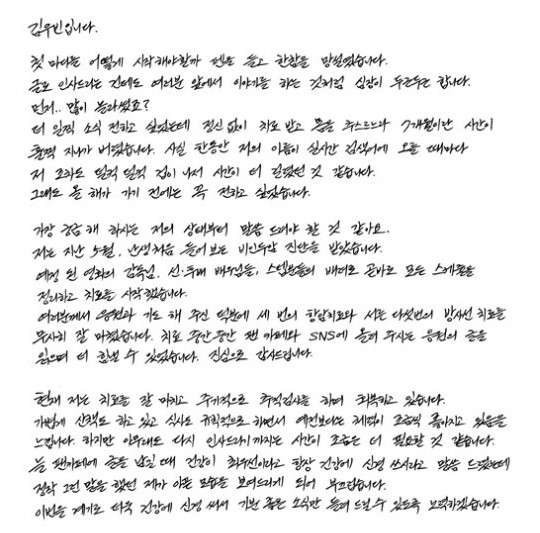 김우빈입니다.
첫 마디를 어떻게 시작해야할까 펜을 들고 한참을 망설였습니다.
글로 인사드리는 건데도 여러분 앞에서 이야기를 하는 것처럼 심장이 두근두근 합니다.
먼저.. 많이 놀라셨죠?
더 일찍 소식 전하고 싶었는데 정신 없이 치료 받고 몸을 추스르느라 7개월이란 시간이
훌쩍 지나가 버렸습니다. 사실 한동안 저의 이름이 실시간 검색어에 오를 때마다
저 조차도 덜컥 덜컥 겁이 나서 시간이 더 걸렸던 것 같습니다.
그래도 올 해가 가기 전에는 꼭 전하고 싶었습니다.
가장 궁금해 하시는 저의 상태부터 말씀 드려야 할 것 같아요.
저는 지난 5월, 난생처음 들어 보는 비인두암 진단을 받았습니다.
예정 된 영화의 감독님, 선·후배 배우님들, 스텝분들의 배려로 곧바로 모든 스케줄을
정리하고 치료를 시작했습니다.
여러분께서 응원과 기도 해 주신 덕분에 세 번의 항암치료와 서른 다섯번의 방사선 치료를
무사히 잘 마쳤습니다. 치료 중간중간 팬 카페와 SNS에 올려 주시는 응원의 글을
읽으며 더 힘낼 수 있었습니다. 진심으로 감사드립니다.
현재 저는 치료를 잘 마치고 주기적으로 추적검사를 하며 회복하고 있습니다.
가볍게 산책도 하고 있고 식사도 규칙적으로 하면서 예전보다는 체력이 조금씩 좋아지고 있음을
느낍니다. 하지만 아무래도 다시 인사드리기까지는 시간이 조금은 더 필요할 것 같습니다.
늘 팬카페에 글을 남길 때 건강이 최우선이라고 항상 건강에 신경 쓰시라고 말씀 드렸는데
정작 그런 말을 했던 제가 아픈 모습을 보여드리게 되어 부끄럽습니다.
이번을 계기로 더욱 건강에 신경 써서 기분 좋은 소식만 들려 드릴 수 있도록 노력하겠습니다.